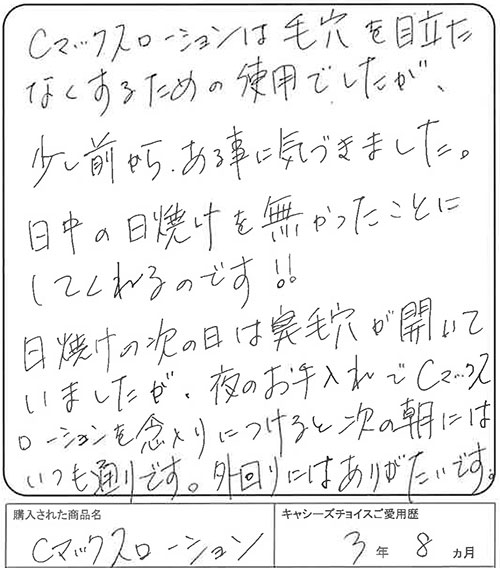 Cマックスローションは毛穴を目立た
なくするための使用でしたが、
少し前から、ある事に気づきました。
日中の日焼けを無かったことに
してくれるのです!!
日焼けの次の日は臭毛穴が開いて
いましたが、夜のお手入れでCマックス
ローションを念入りにつけると次の朝には
いつも通りです。外回りにはありがたいです。
購入された商品名 キャシーズチョイスご愛用歴
Cマックスローション 3年 8ヵ月